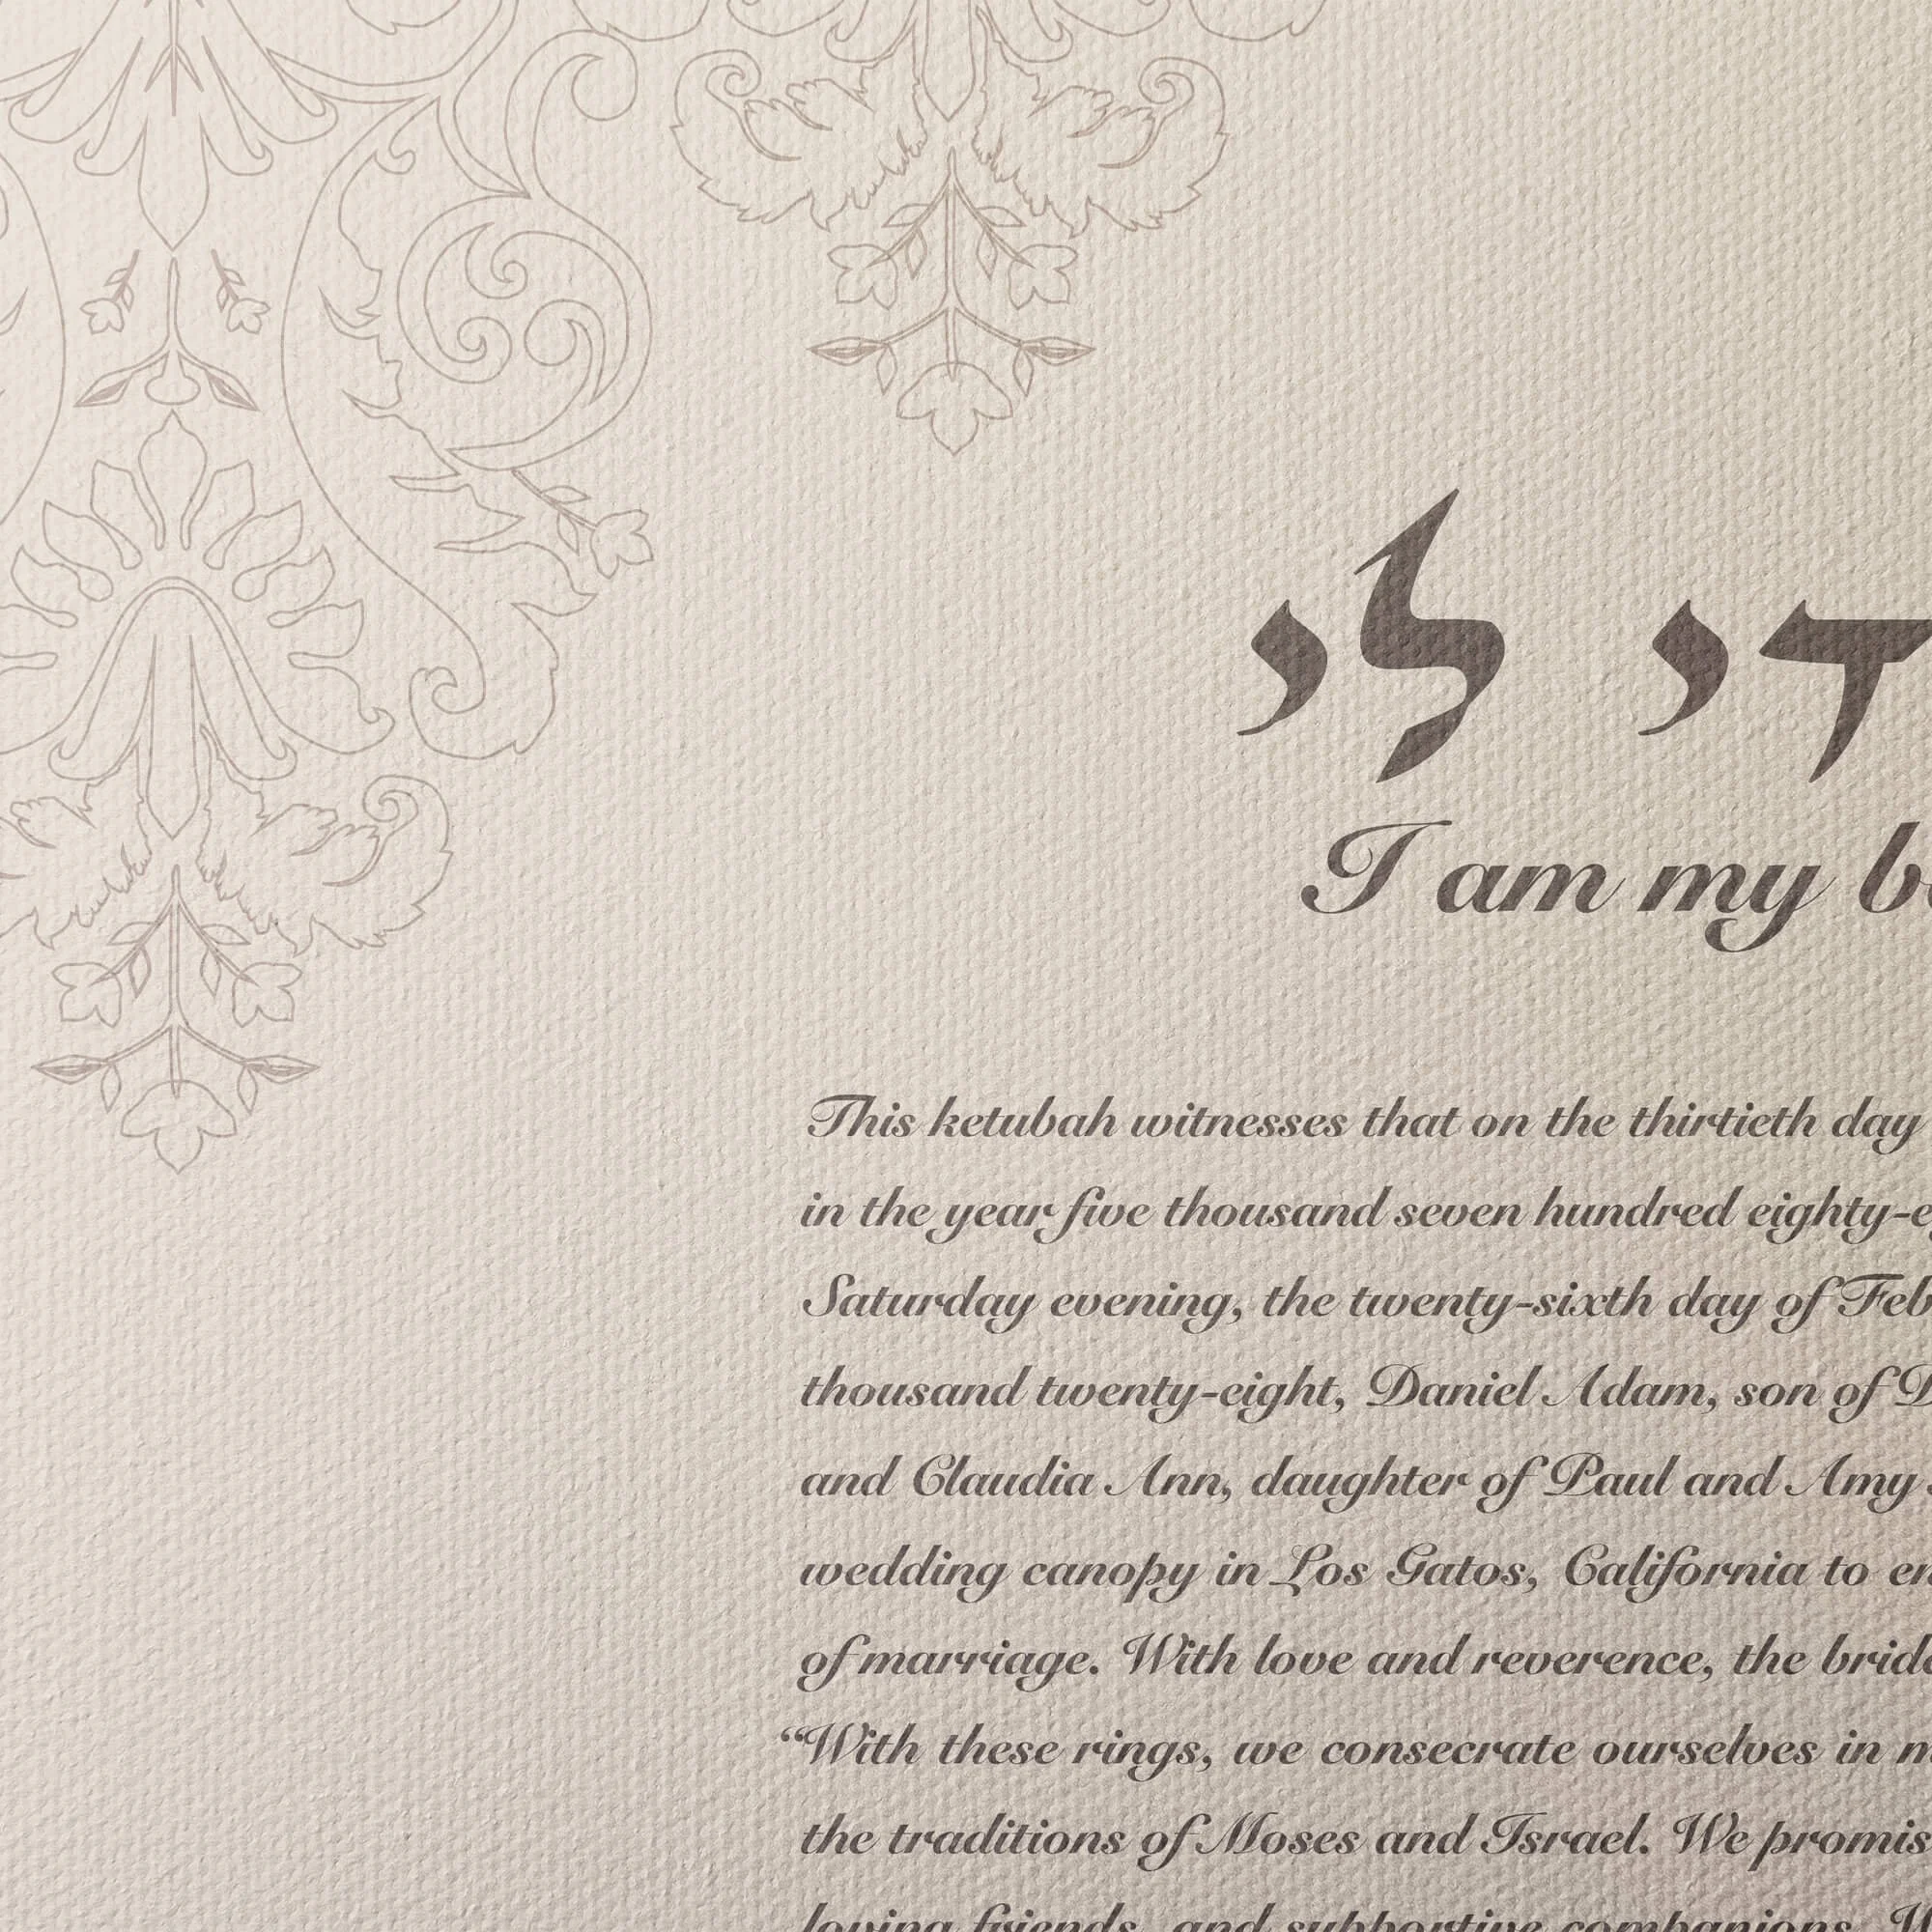 די לי
I am my
This ketubah witnesses that on the thirtieth day
in the year five thousand seven hundred eighty-
Saturday evening, the twenty-sixth day of Feb
thousand twenty-eight, Daniel Adam, son of D
and Claudia Ann, daughter of Paul and Amy
wedding canopy in Los Gatos, California to en
of marriage. With love and reverence, the brid
“With these rings, we consecrate ourselves in m
the traditions of Moses and Israel. We promis
loving friends, and supportive companions. W